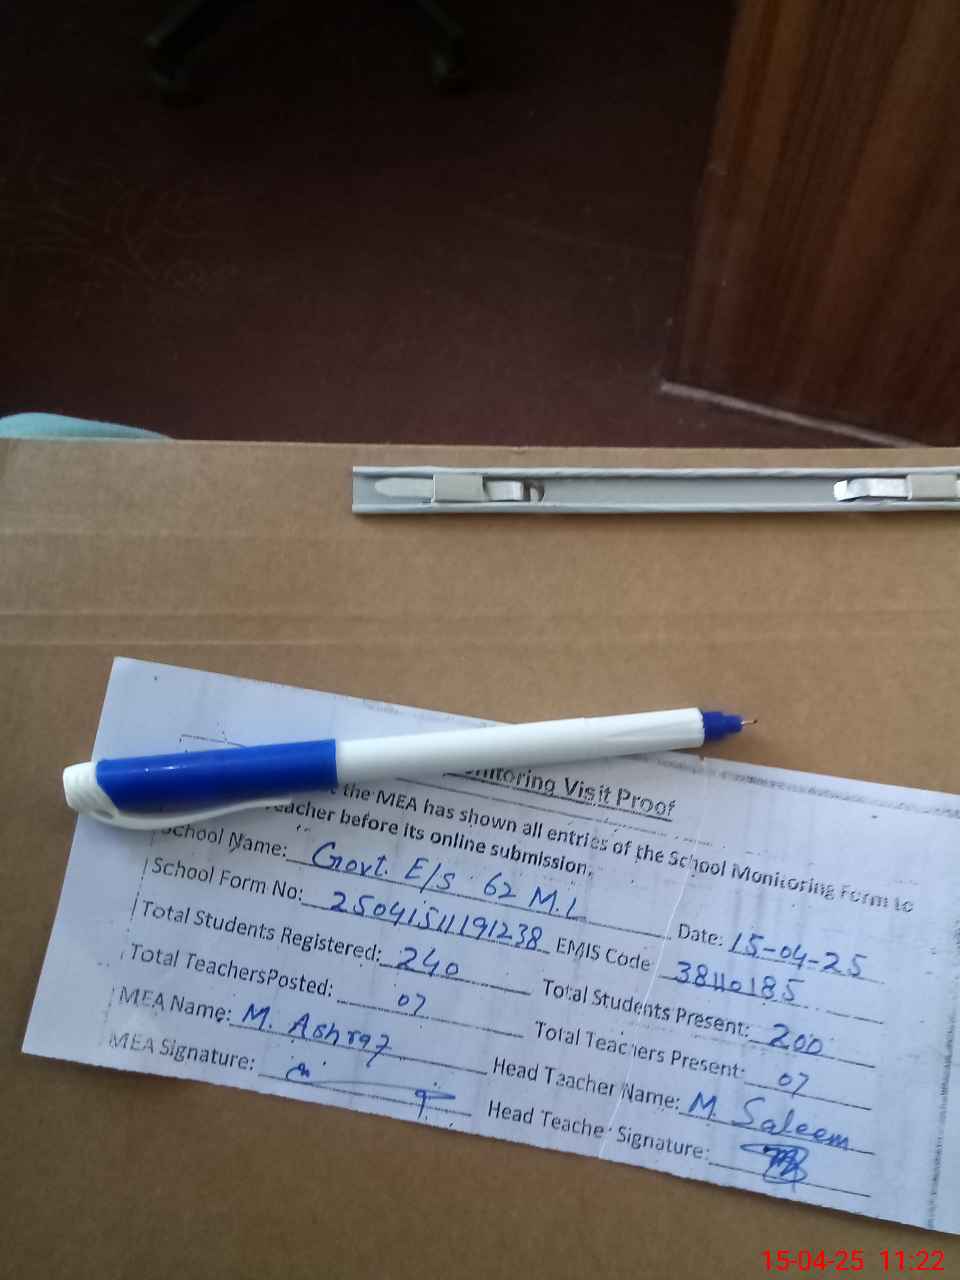 Monitoring Visit Proof
the MEA has shown all entries of the School Monitoring Form to
teacher before its online submission.
School Name: Govt. E/S 62 M.L Date: 15-04-25
School Form No: 25041511191238 EMIS Code 38110185
Total Students Registered: 240 Total Students Present: 200
Total TeachersPosted: 07 Total Teachers Present: 07
MEA Name: M. Ashraf Head Teacher Name: M. Saleem
MEA Signature: Head Teacher Signature:
15-04-25 11:22